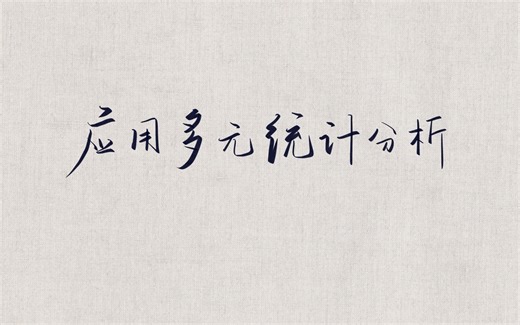 应用多元统计分析